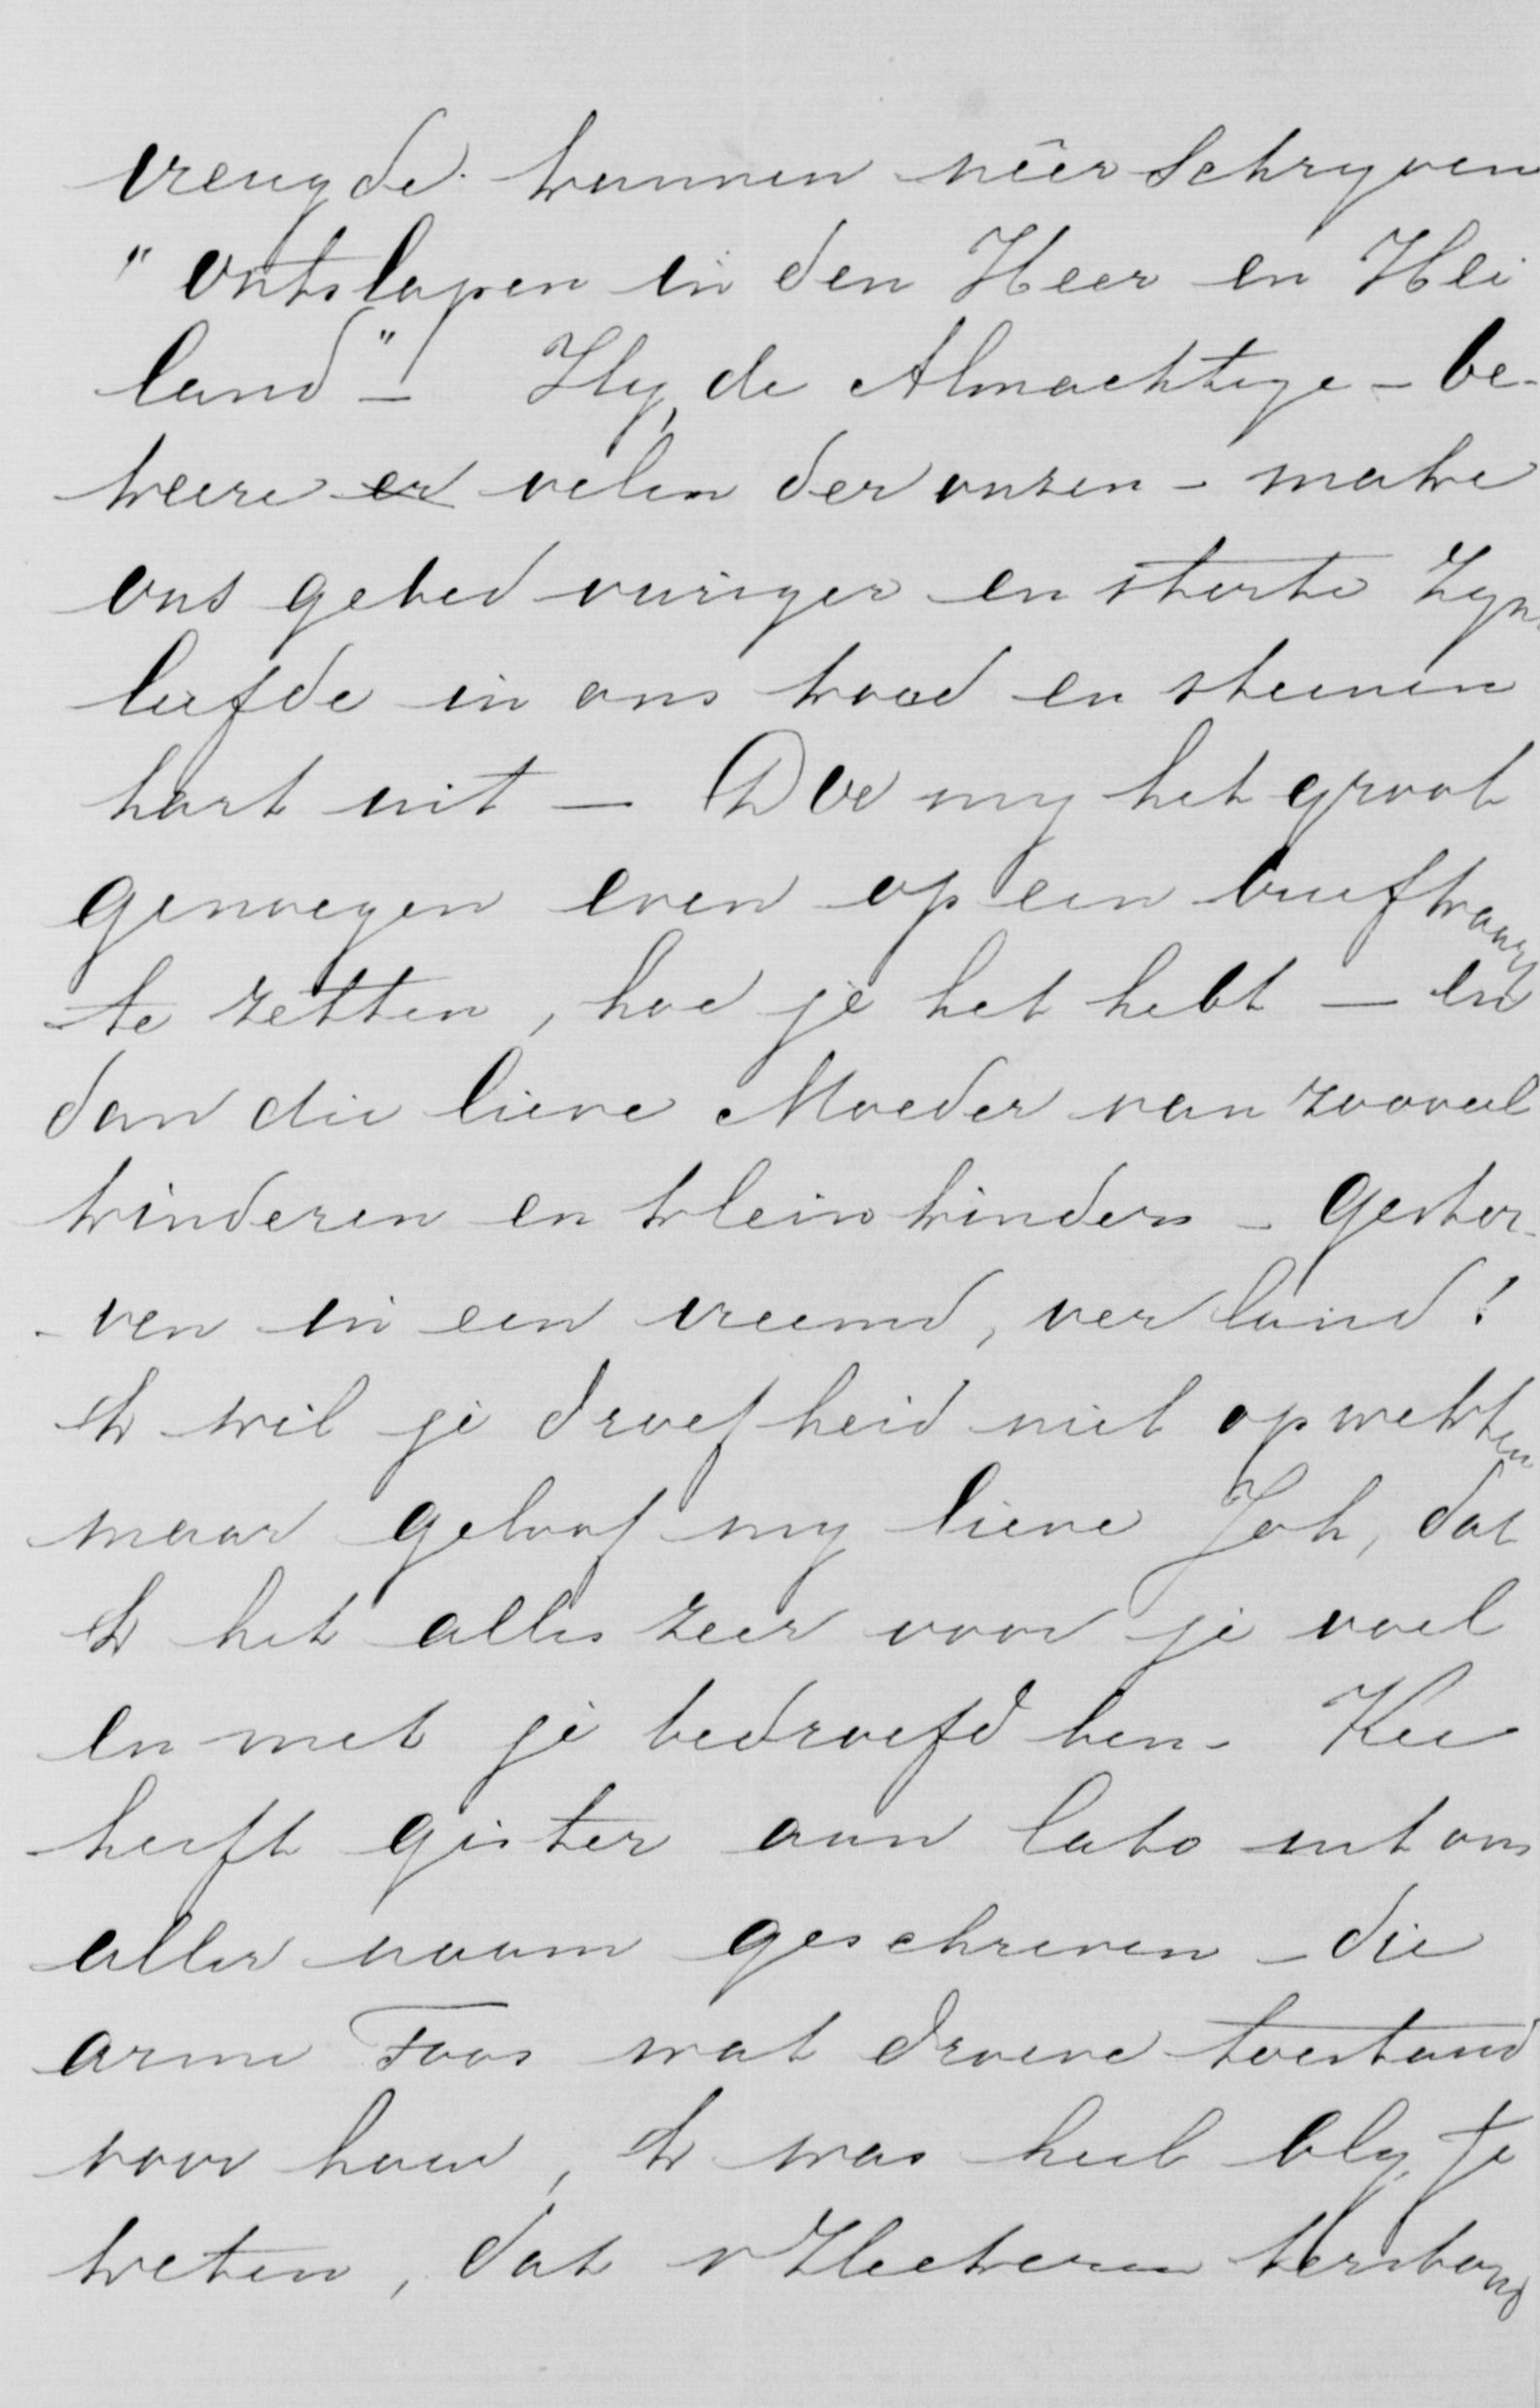 vreugde kunnen nêerschryven
"Ontslapen in den Heer en Hei
land"! Hy, de Almachtige - be-
keere er velen der onzen - make
ons gebed vuriger en storte Zyn
liefde in ons koud en steenen
hart uit — Doe my het groot
genoegen even op een briefkaart
te zetten, hoe je het hebt — en
dan die lieve Moeder van zooveel
kinderen en kleinkinders - gestor-
-ven in een vreemd, ver land!
Ik wil je droefheid niet opwekken
maar geloof my lieve Joh, dat
ik het alles zeer voor je voel
en met je bedroefd ben - Kee
heeft gister aan Cato uit ons
aller naam geschreven - die
arme Toos wat droeve toestand
voor haar, ik was heel bly te
weten, dat v Heekeren